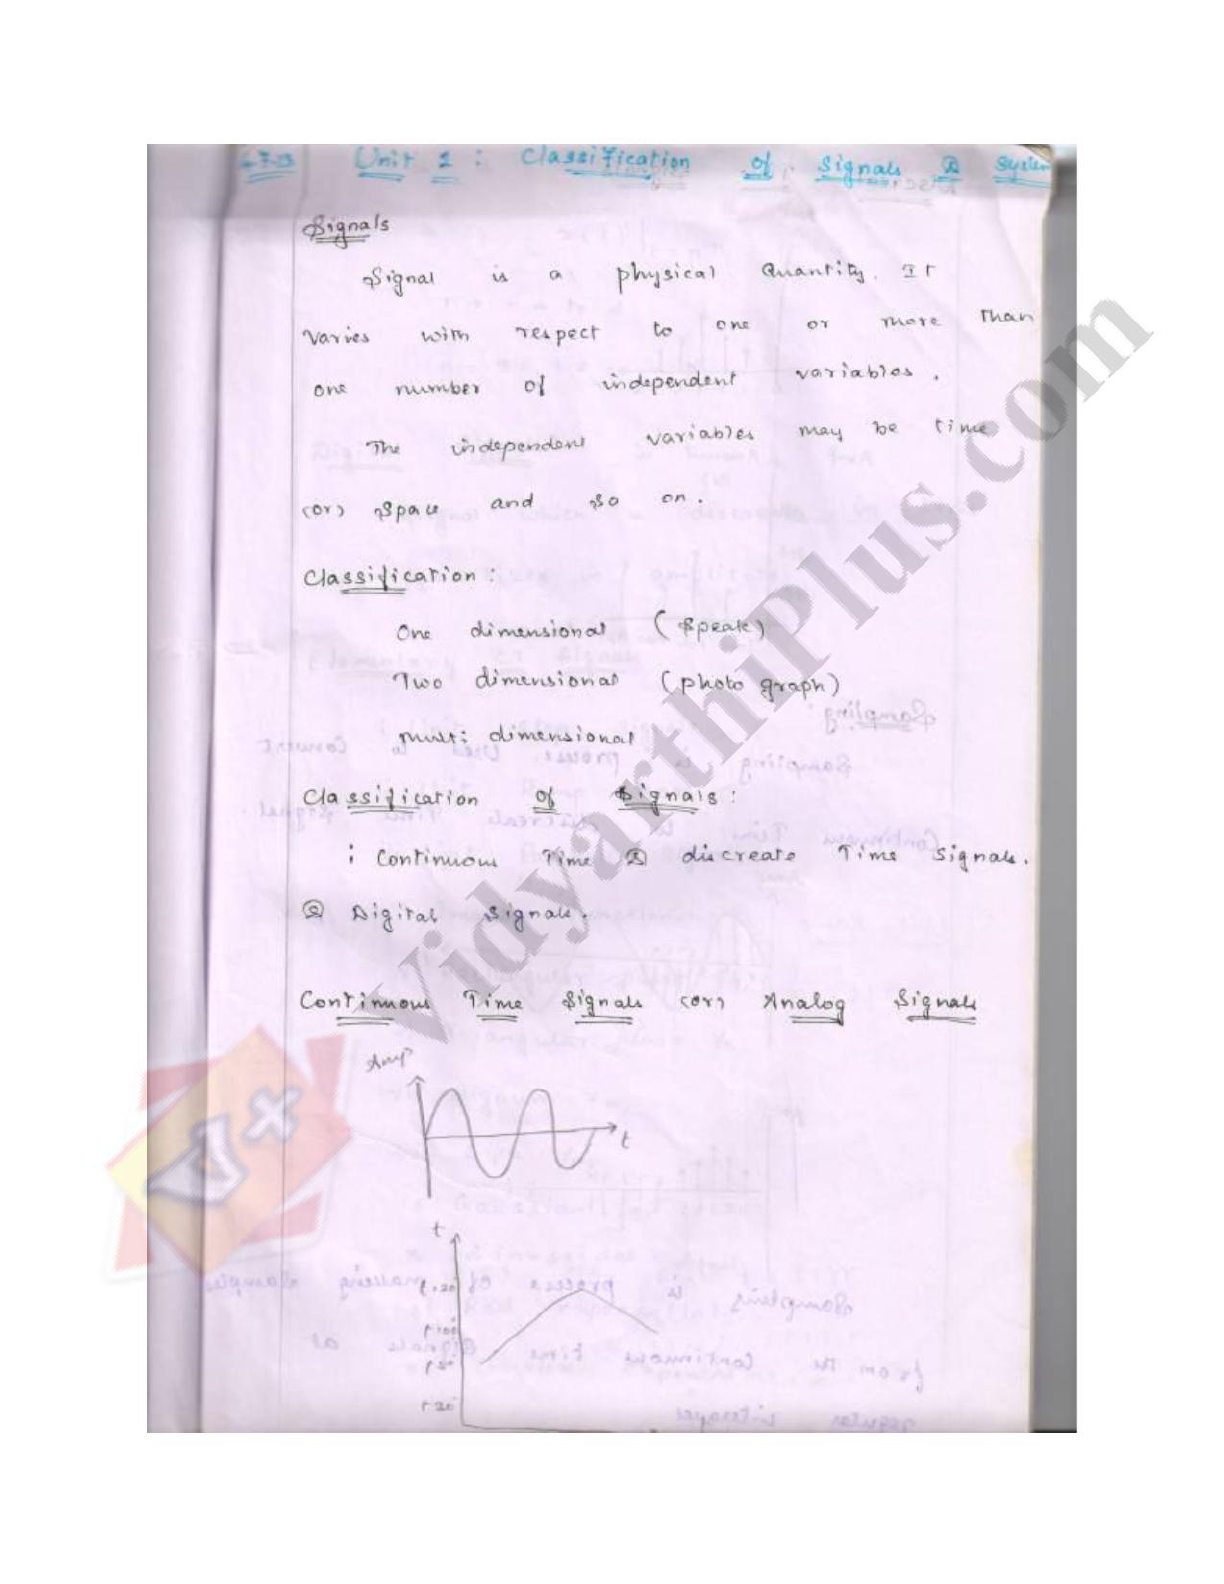 Unit 1 : Classification of Signals & System
Signals
Signal is a physical Quantity. It
varies with respect to one or more than
one number of independent variables.
The independent variables may be time
(or) Space and so on.
Classification:
One dimensional (Speak)
Two dimensional (photo graph)
multi dimensional
Classification of Signals:
1 Continuous Time & discreate Time signals.
② Digital Signals.
Continuous Time Signals (or) Analog Signals
Amp
t
t
VidyarthiPlus.com
V+